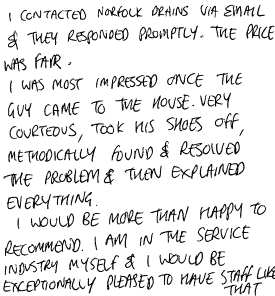 I CONTACTED NORFOLK DRAINS VIA EMAIL
& THEY RESPONDED PROMPTLY. THE PRICE
WAS FAIR.
I WAS MOST IMPRESSED ONCE THE
GUY CAME TO THE HOUSE. VERY
COURTEOUS, TOOK HIS SHOES OFF,
METHODICALLY FOUND & RESOLVED
THE PROBLEM & THEN EXPLAINED
EVERYTHING.
I WOULD BE MORE THAN HAPPY TO
RECOMMEND. I AM IN THE SERVICE
INDUSTRY MYSELF & I WOULD BE
EXCEPTIONALLY PLEASED TO HAVE STAFF LIKE
THAT